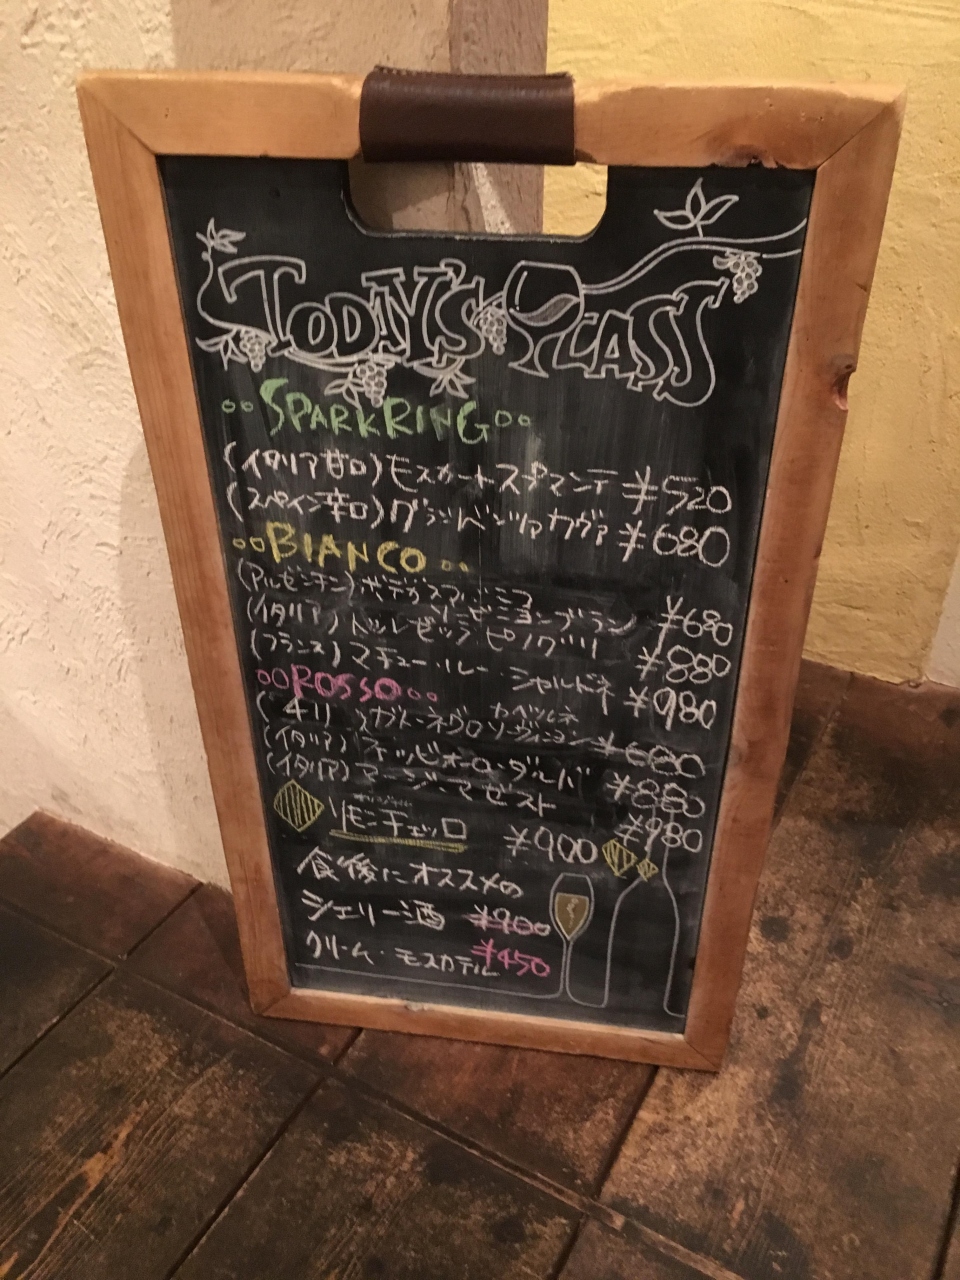 TODAY'S GLASS
SPARKRING
(イタリア甘口)モスカートスプマンテ ¥520
(スペイン辛口)グラン バジァ カヴァ ¥680
BIANCO
(アルゼンチン)ボデガスマ
ソーヴィニヨンブラン ¥680
(イタリア)ドッレゼッダ ピノグリ ¥880
(フランス)マチュー・ルー シャルドネ ¥980
ROSSO
(チリ)ガトーネグロ カベルネ
ソーヴィニヨン ¥680
(イタリア)フィリッピオーロ・ダルバ ¥880
(イタリア)マージ・マゼスト ¥980
オリジナル
リモンチェッロ ¥900
食後にオススメの
シェリー酒 ¥900
クリーム・モスカテル ¥450